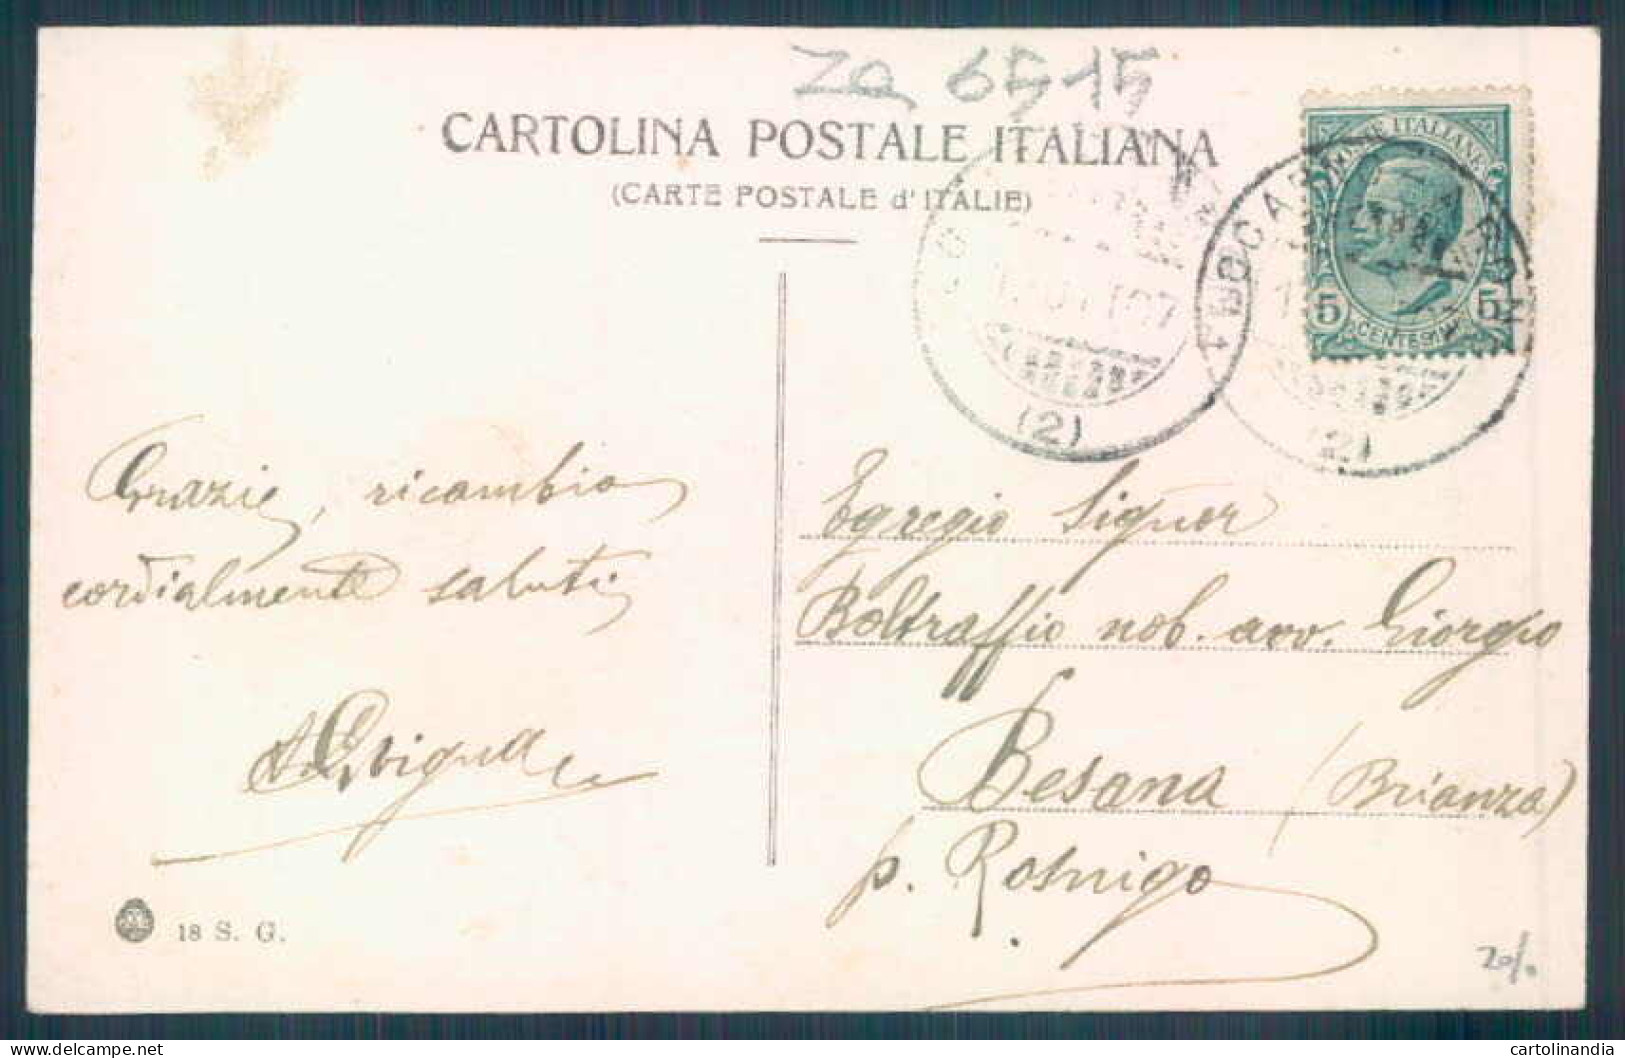 Za 6515
CARTOLINA POSTALE ITALIANA
(CARTE POSTALE d'ITALIE)
POSTE ITALIANE
5 5
CENTESIMI
(2)
(2)
Grazie, ricambio
cordialmente saluti
Egregio Signor
Boltraffio nob. avv. Giorgio
Besana (Brianza)
p.
18 S. G.
20/.
www.delcampe.net
cartolinandia